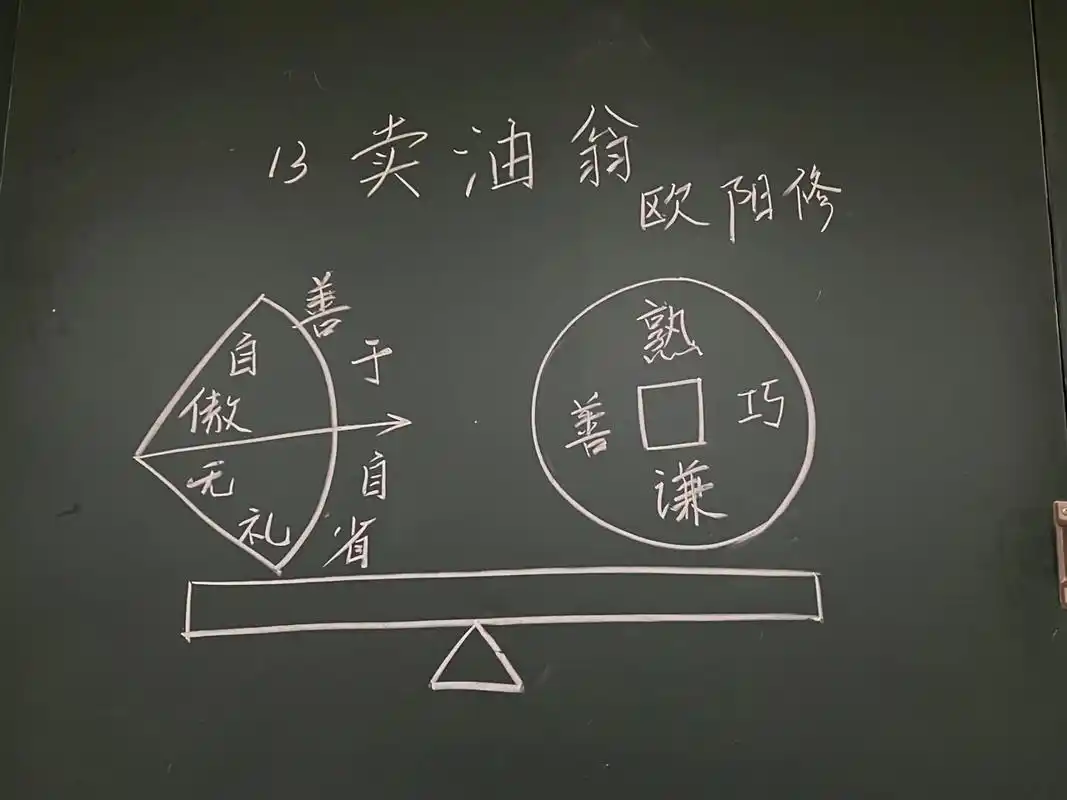 13 卖油翁
欧阳修
自傲
无礼
善于自省
熟
善 巧
谦